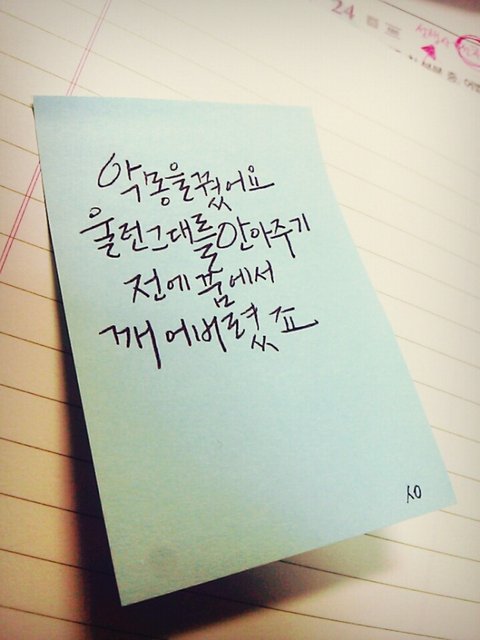 24
악몽을꿨어요
울런그대를안아주기
전에꿈에서
깨어버렸죠